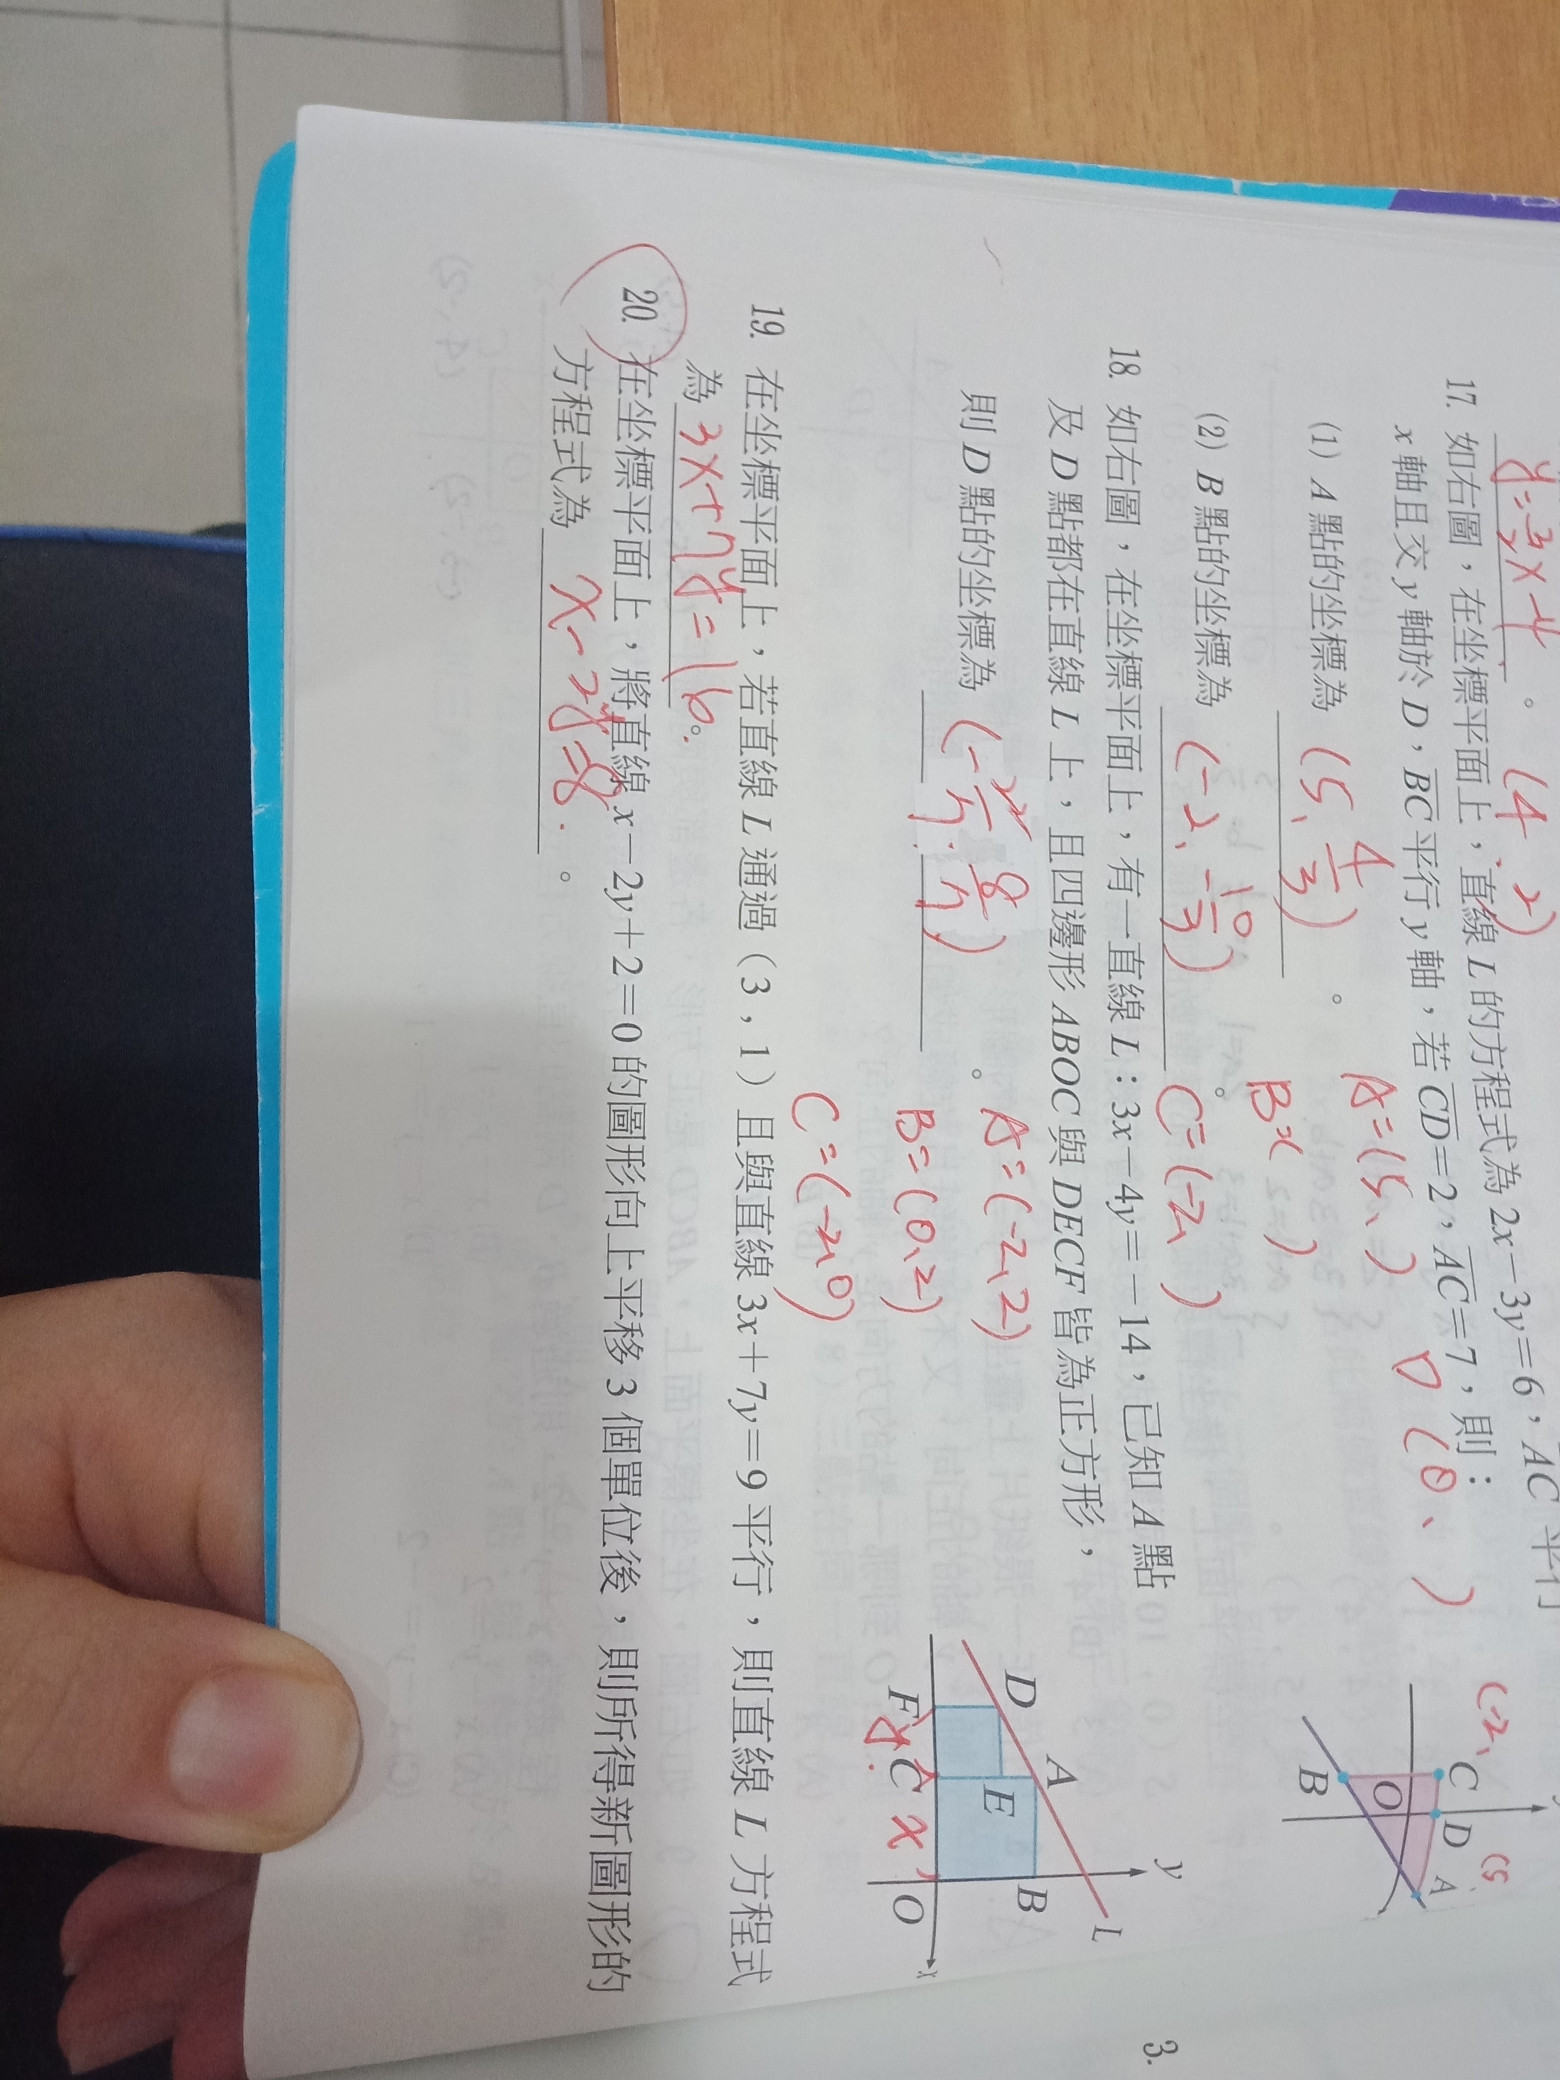 y=3/2x-4。(4、2)
17. 如右圖，在坐標平面上，直線 L 的方程式為 2x－3y＝6，AC 平行
x 軸且交 y 軸於 D，BC 平行 y 軸，若 CD＝2，AC＝7，則：
D(0、 )
(1) A 點的坐標為 (5、4/3)。
A=(5、 )
Bx( )
(2) B 點的坐標為 (-2、-10/3)。
C=(-2, )
(-2、
C D A (5
O
B
18. 如右圖，在坐標平面上，有一直線 L：3x－4y＝－14，已知 A 點
及 D 點都在直線 L 上，且四邊形 ABOC 與 DECF 皆為正方形，
則 D 點的坐標為。
A=(-2、2)
B=(0、2)
C=(-2、0)
y
L
D A B
E
F C O x
y x
19. 在坐標平面上，若直線 L 通過（3，1）且與直線 3x＋7y＝9 平行，則直線 L 方程式
為 3x+7y=16。
20. 在坐標平面上，將直線 x－2y＋2＝0 的圖形向上平移 3 個單位後，則所得新圖形的
方程式為 x-2y=8。
3.